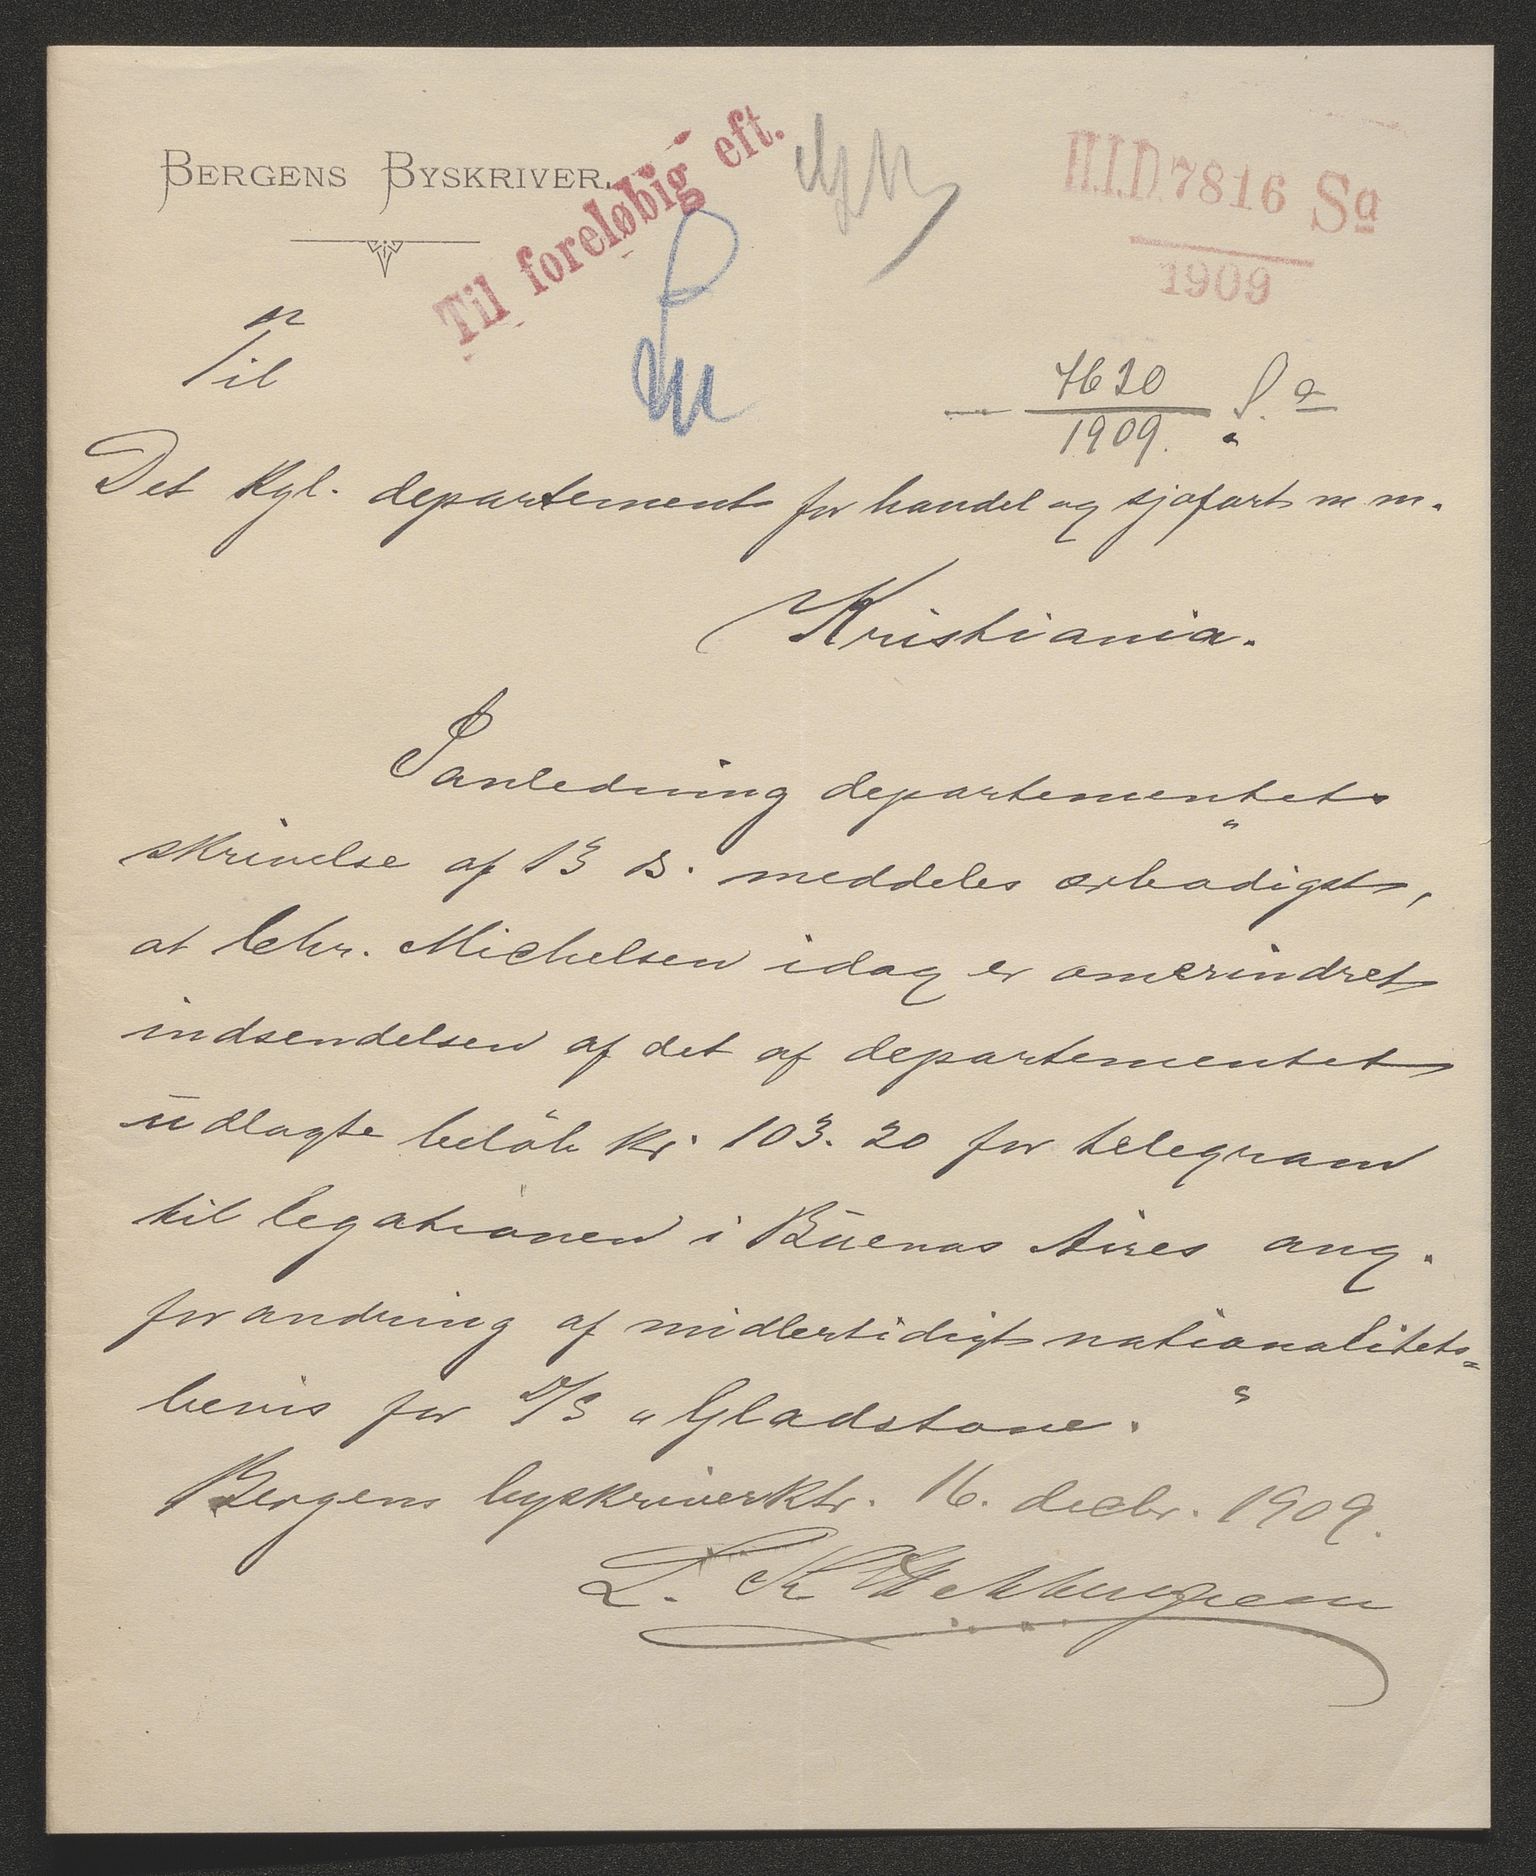 BERGENS BYSKRIVER.
Til foreløbig eft.
H.I.D. 7816 Sa
1909
Til
7620 S. a
1909.
Det Kgl. departement for handel og sjøfart m m.
Kristiania.
I anledning departementets
skrivelse af 13 ds. meddeles ærbødigst,
at Chr. Michelsen idag er omerindret
indsendelsen af det af departementet
udlagte beløb kr. 103.20 for telegram
til legationen i Buenos Aires ang.
forandring af midlertidigt nationalitets=
bevis for D/S "Gladstone."
Bergens byskriverktr. 16. decbr. 1909.
L. K.